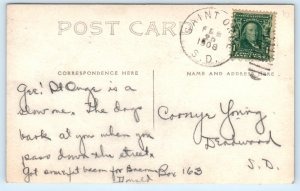 POST CARD
SAINT O
FEB
1908
S.D.
CORRESPONDENCE HERE
NAME AND ADDRESS HERE
Gee! St Onge is a
slow one. The dogs
bark at you when you
pass down the street.
Got
Young
Deadwood
S.D.
Box 163